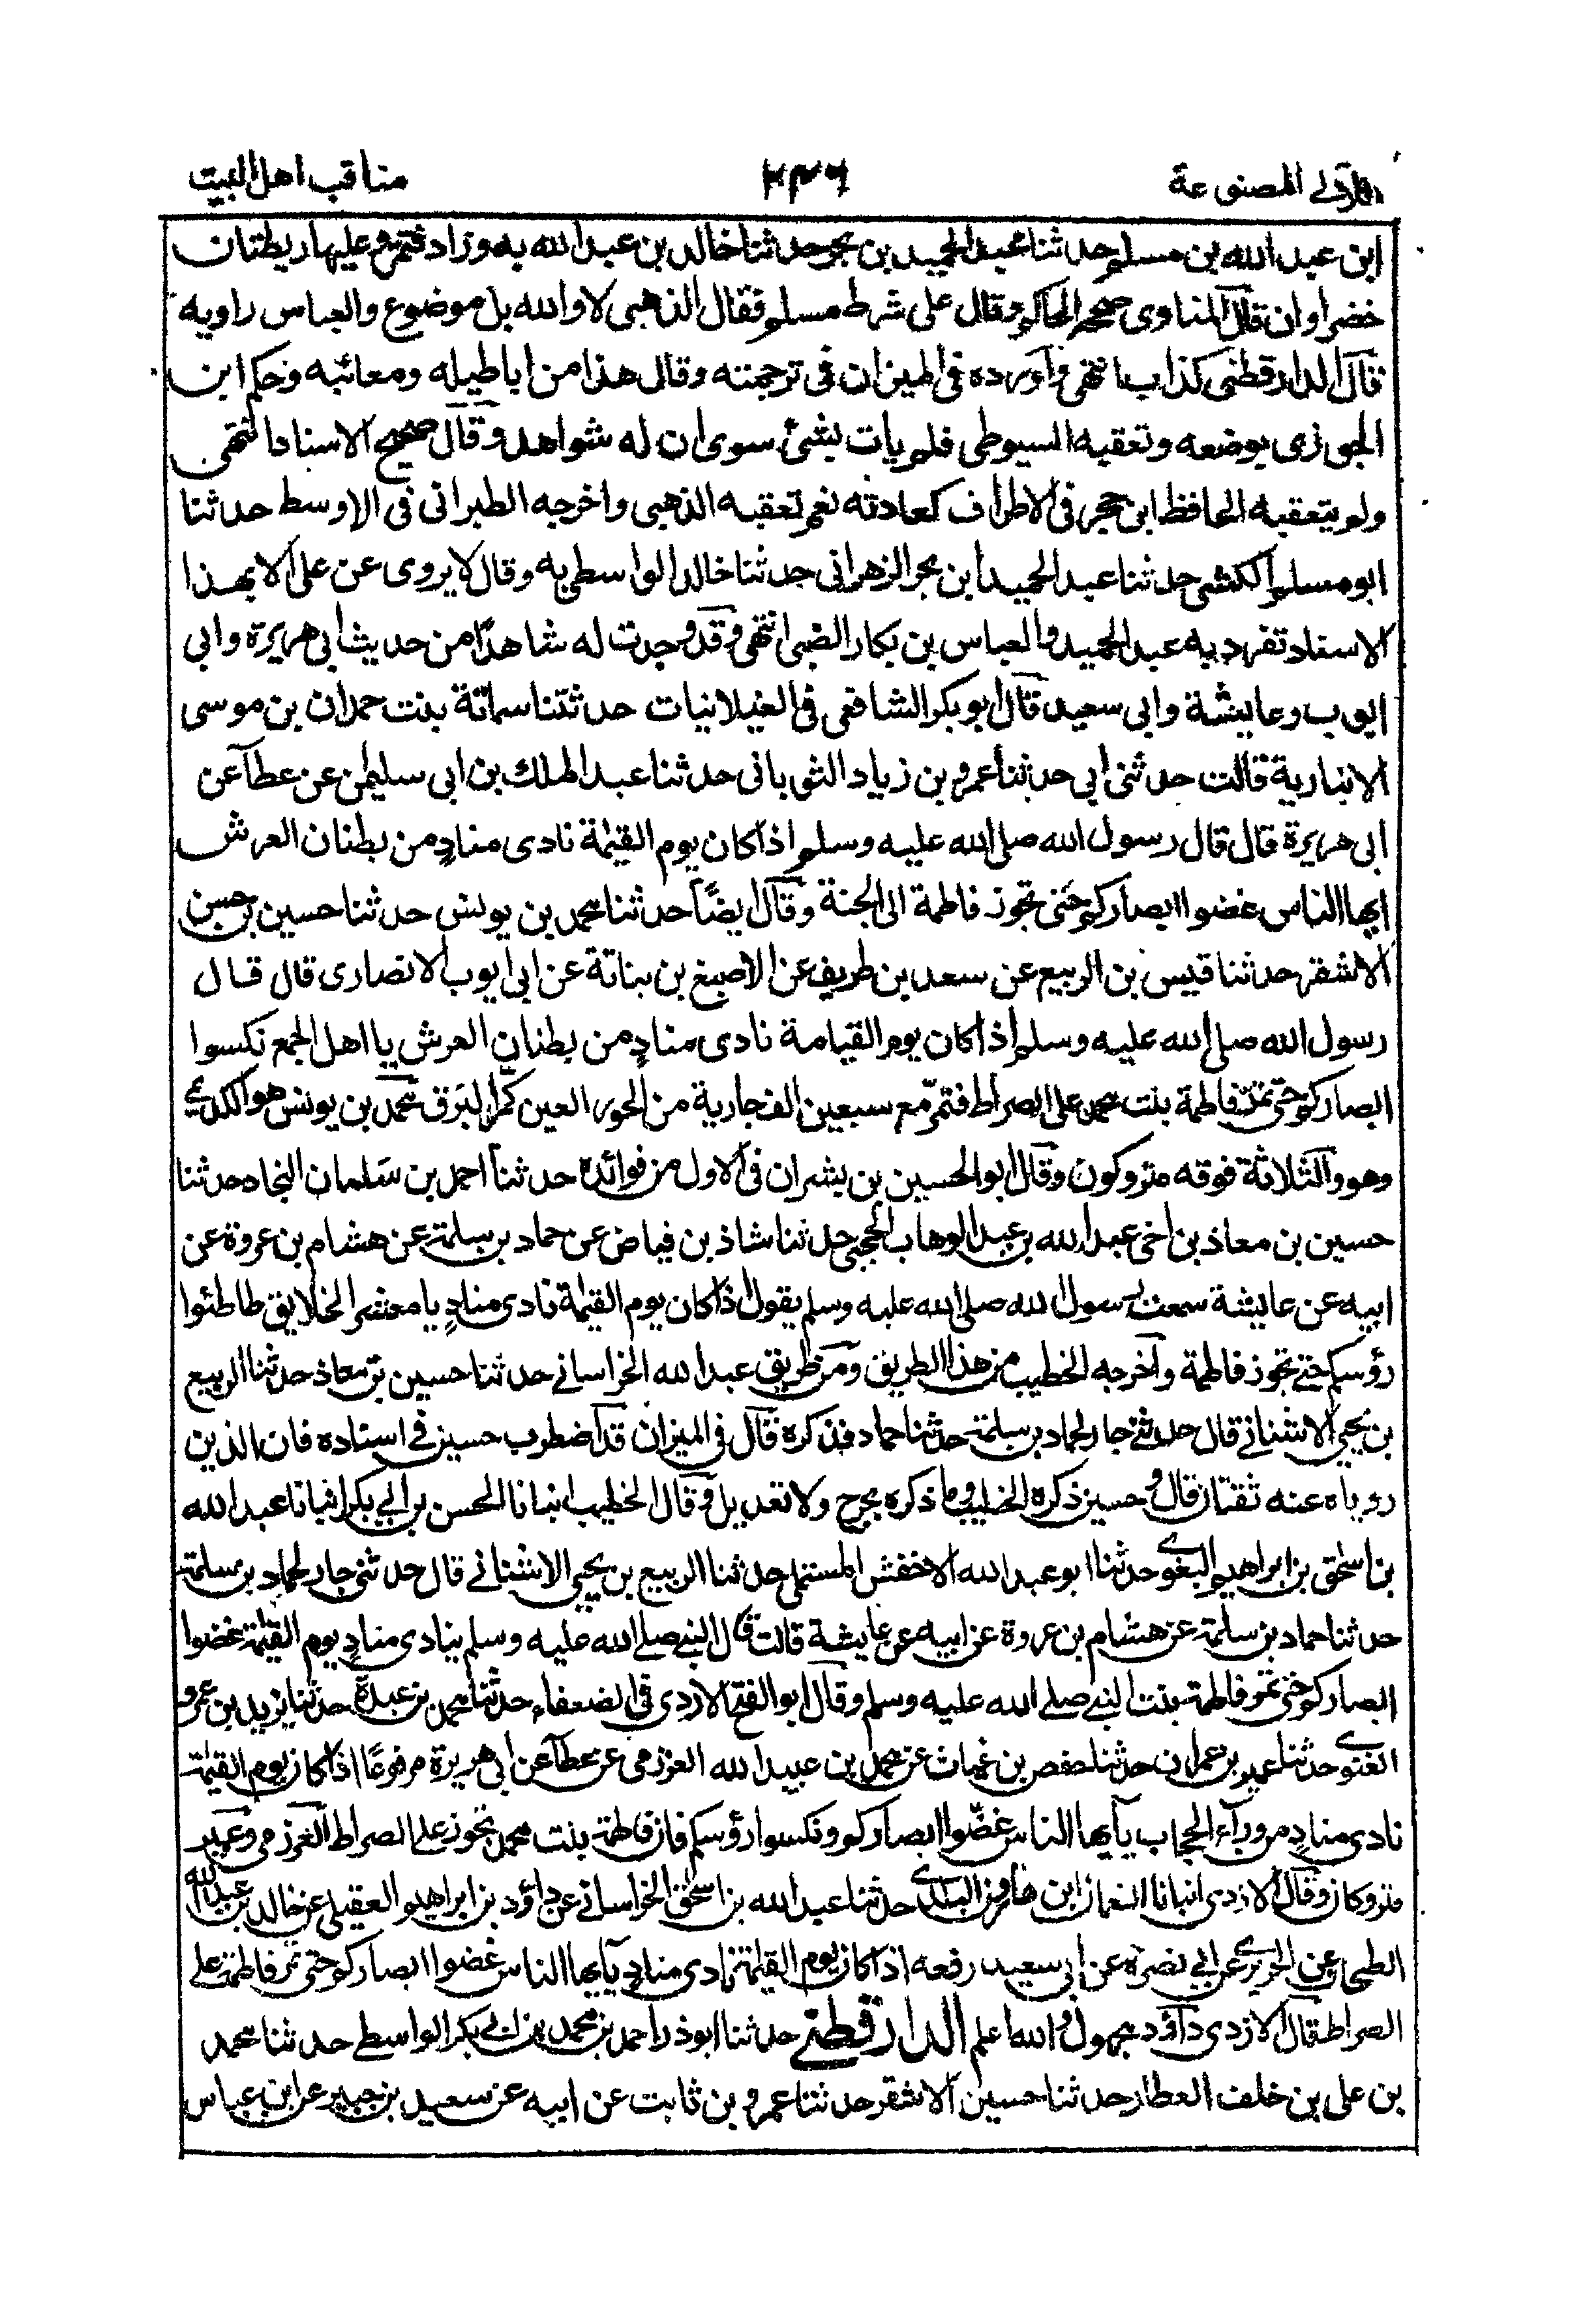 اللآلى المصنوعة
٢٣٦
مناقب اهل البيت
ابن عبد الله بن مسلم حدثنا عبد الحميد بن بحر حدثنا خالد بن عبد الله به وزاد فتمر وعليها ريطتان
خضراوان قال المناوى صححه الحاكم وقال على شرط مسلم فقال الذهبى لا والله بل موضوع والعباس راويه
قال الدارقطنى كذاب انتهى وآورده فى الميزان فى ترجمته وقال هذا من اباطيله ومعائبه وحكم ابن
الجوزى بوضعه وتعقبه السيوطى فلم يات بشئ سوى ان له شواهد وقال صحيح الاسناد انتهى
ولم يتعقبه الحافظ ابن حجر فى الاطراف كعادته نعم تعقبه الذهبى واخرجه الطبرانى فى الاوسط حدثنا
ابو مسلم الكشى حدثنا عبد الحميد ابن بحر الزهرانى حدثنا خالد الواسطى به وقال لا يروى عن على الا بهذا
الاسناد تفرد به عبد الحميد والعباس بن بكار الضبى انتهى وقد وجدت له شاهدًا من حديث ابى هريرة وابى
ايوب وعايشة وابى سعيد قال ابو بكر الشافعى فى الغيلانيات حدثتنا سمانة بنت حمدان بن موسى
الانبارية قالت حدثنى ابى حدثنا عمرو بن زياد الثوبانى حدثنا عبد الملك بن ابى سليمٰن عن عطآ عن
ابى هريرة قال قال رسول الله صلى الله عليه وسلم اذا كان يوم القيٰمة نادى منادٍ من بطنان العرش
ايها الناس غضوا ابصاركم حتى تجوز فاطمة الى الجنة وقال ايضًا حدثنا محمد بن يونس حدثنا حسين بن حسن
الاشقر حدثنا قيس بن الربيع عن سعد بن طريف عن الاصبغ بن نباتة عن ابى ايوب الانصارى قال قال
رسول الله صلى الله عليه وسلم اذا كان يوم القيامة نادى منادٍ من بطنان العرش يا اهل الجمع نكسوا
ابصاركم حتى تمرّ فاطمة بنت محمد على الصراط فتمرّ مع سبعين الف جارية من الحور العين كمرّ البَرق محمد بن يونس هو الكديمي
وهو والثلاثة فوقه متروكون وقال ابو الحسين بن بشران فى الاول من فوائده حدثنا احمد بن سَلمان النجاد حدثنا
حسين بن معاذ بن اخى عبد الله بن عبد الوهاب الحجبى حدثنا شاذ بن فياض عن حماد بن سلمة عن هشام بن عروة عن
ابيه عن عايشة سمعت رسول الله صلى الله عليه وسلم يقول اذا كان يوم القيٰمة نادى منادٍ يا معشر الخلايق طاطئوا
رؤسكم حتے تجوز فاطمة وآخرجه الخطيب من هذا الطريق ومن طريق عبد الله الخراسانے حدثنا حسين بن معاذ حدثنا الربيع
بن يحيى الاشنانے قال حدثنے جار لحماد بن سلمة حدثنا حماد فذكره قال فى الميزان قد اضطرب حسين فے اسناده فان الذين
روياه عنه ثقتان قال وحسين ذكره الخطيب وما ذكره بجرح ولا تعديل وقال الخطيب انبانا الحسن بن ابي بكر انبانا عبد الله
بن اسٰحق بن ابراهيم البغوى حدثنا ابو عبد الله الاخفش المستملى حدثنا الربيع بن يحيى الاشنانے قال حدثنى جار لحماد بن سلمة
حدثنا حماد بن سلمة عن هشام بن عروة عن ابيه عن عايشة قالت قال النبے صلے الله عليه وسلم ينادى منادٍ يوم القيٰمة غضوا
ابصاركم حتى تمر فاطمة بنت النبے صلے الله عليه وسلم وقال ابو الفتح الازدى فى الضعفاء حدثنا محمد بن عبدة حدثنا يزيد بن عمرو
الغنوى حدثنا عمير بن عمران حدثنا حفص بن غياث عن محمد بن عبيد الله العرزمى عن عطآ عن ابى هريرة مرفوعًا اذا كان يوم القيٰمة
نادى منادٍ من ورآء الحجاب يآيها الناس غضّوا ابصاركم ونكسوا رؤسكم فان فاطمة بنت محمد تجوز على الصراط العرزمى وعمير
متروكان وقال الازدى انبانا النعمان ابن هارون البلدى حدثنا عبد الله بن اسٰحق الخراسانے عن داؤد بن ابراهيم العقيلى عن خالد بن عبد الله
الطحان عن الجريرى عن ابي نضرة عن ابى سعيد رفعه اذا كان يوم القيٰمة نادى منادٍ يآيها الناس غضوا ابصاركم حتى تمر فاطمة على
الصراط قال الازدى داؤد مجهول والله اعلم الدارقطنے حدثنا ابو ذر احمد بن محمد بن ابے بكر الواسطے حدثنا محمد
بن على بن خلف العطار حدثنا حسين الاشقر حدثنا عمرو بن ثابت عن ابيه عن سعيد بن جبير عن ابن عباس